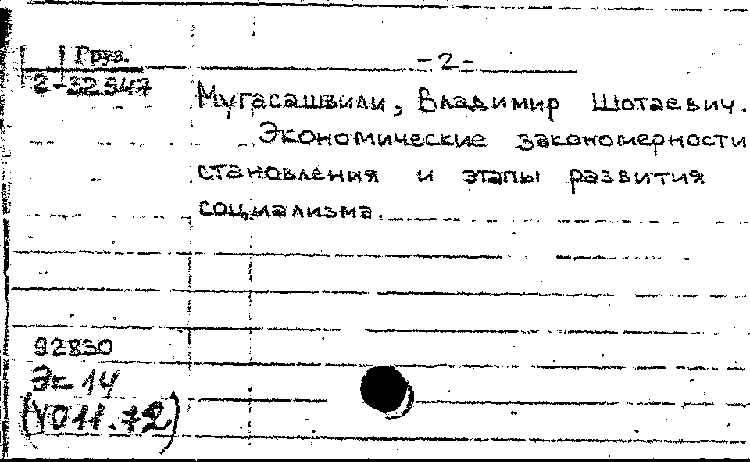 Груз.
2-32547
-2-
Мугасашвили, Владимир Шотаевич.
Экономические закономерности
становления и этапы развития
социализма.
92830
Эк 14
(У011.72)